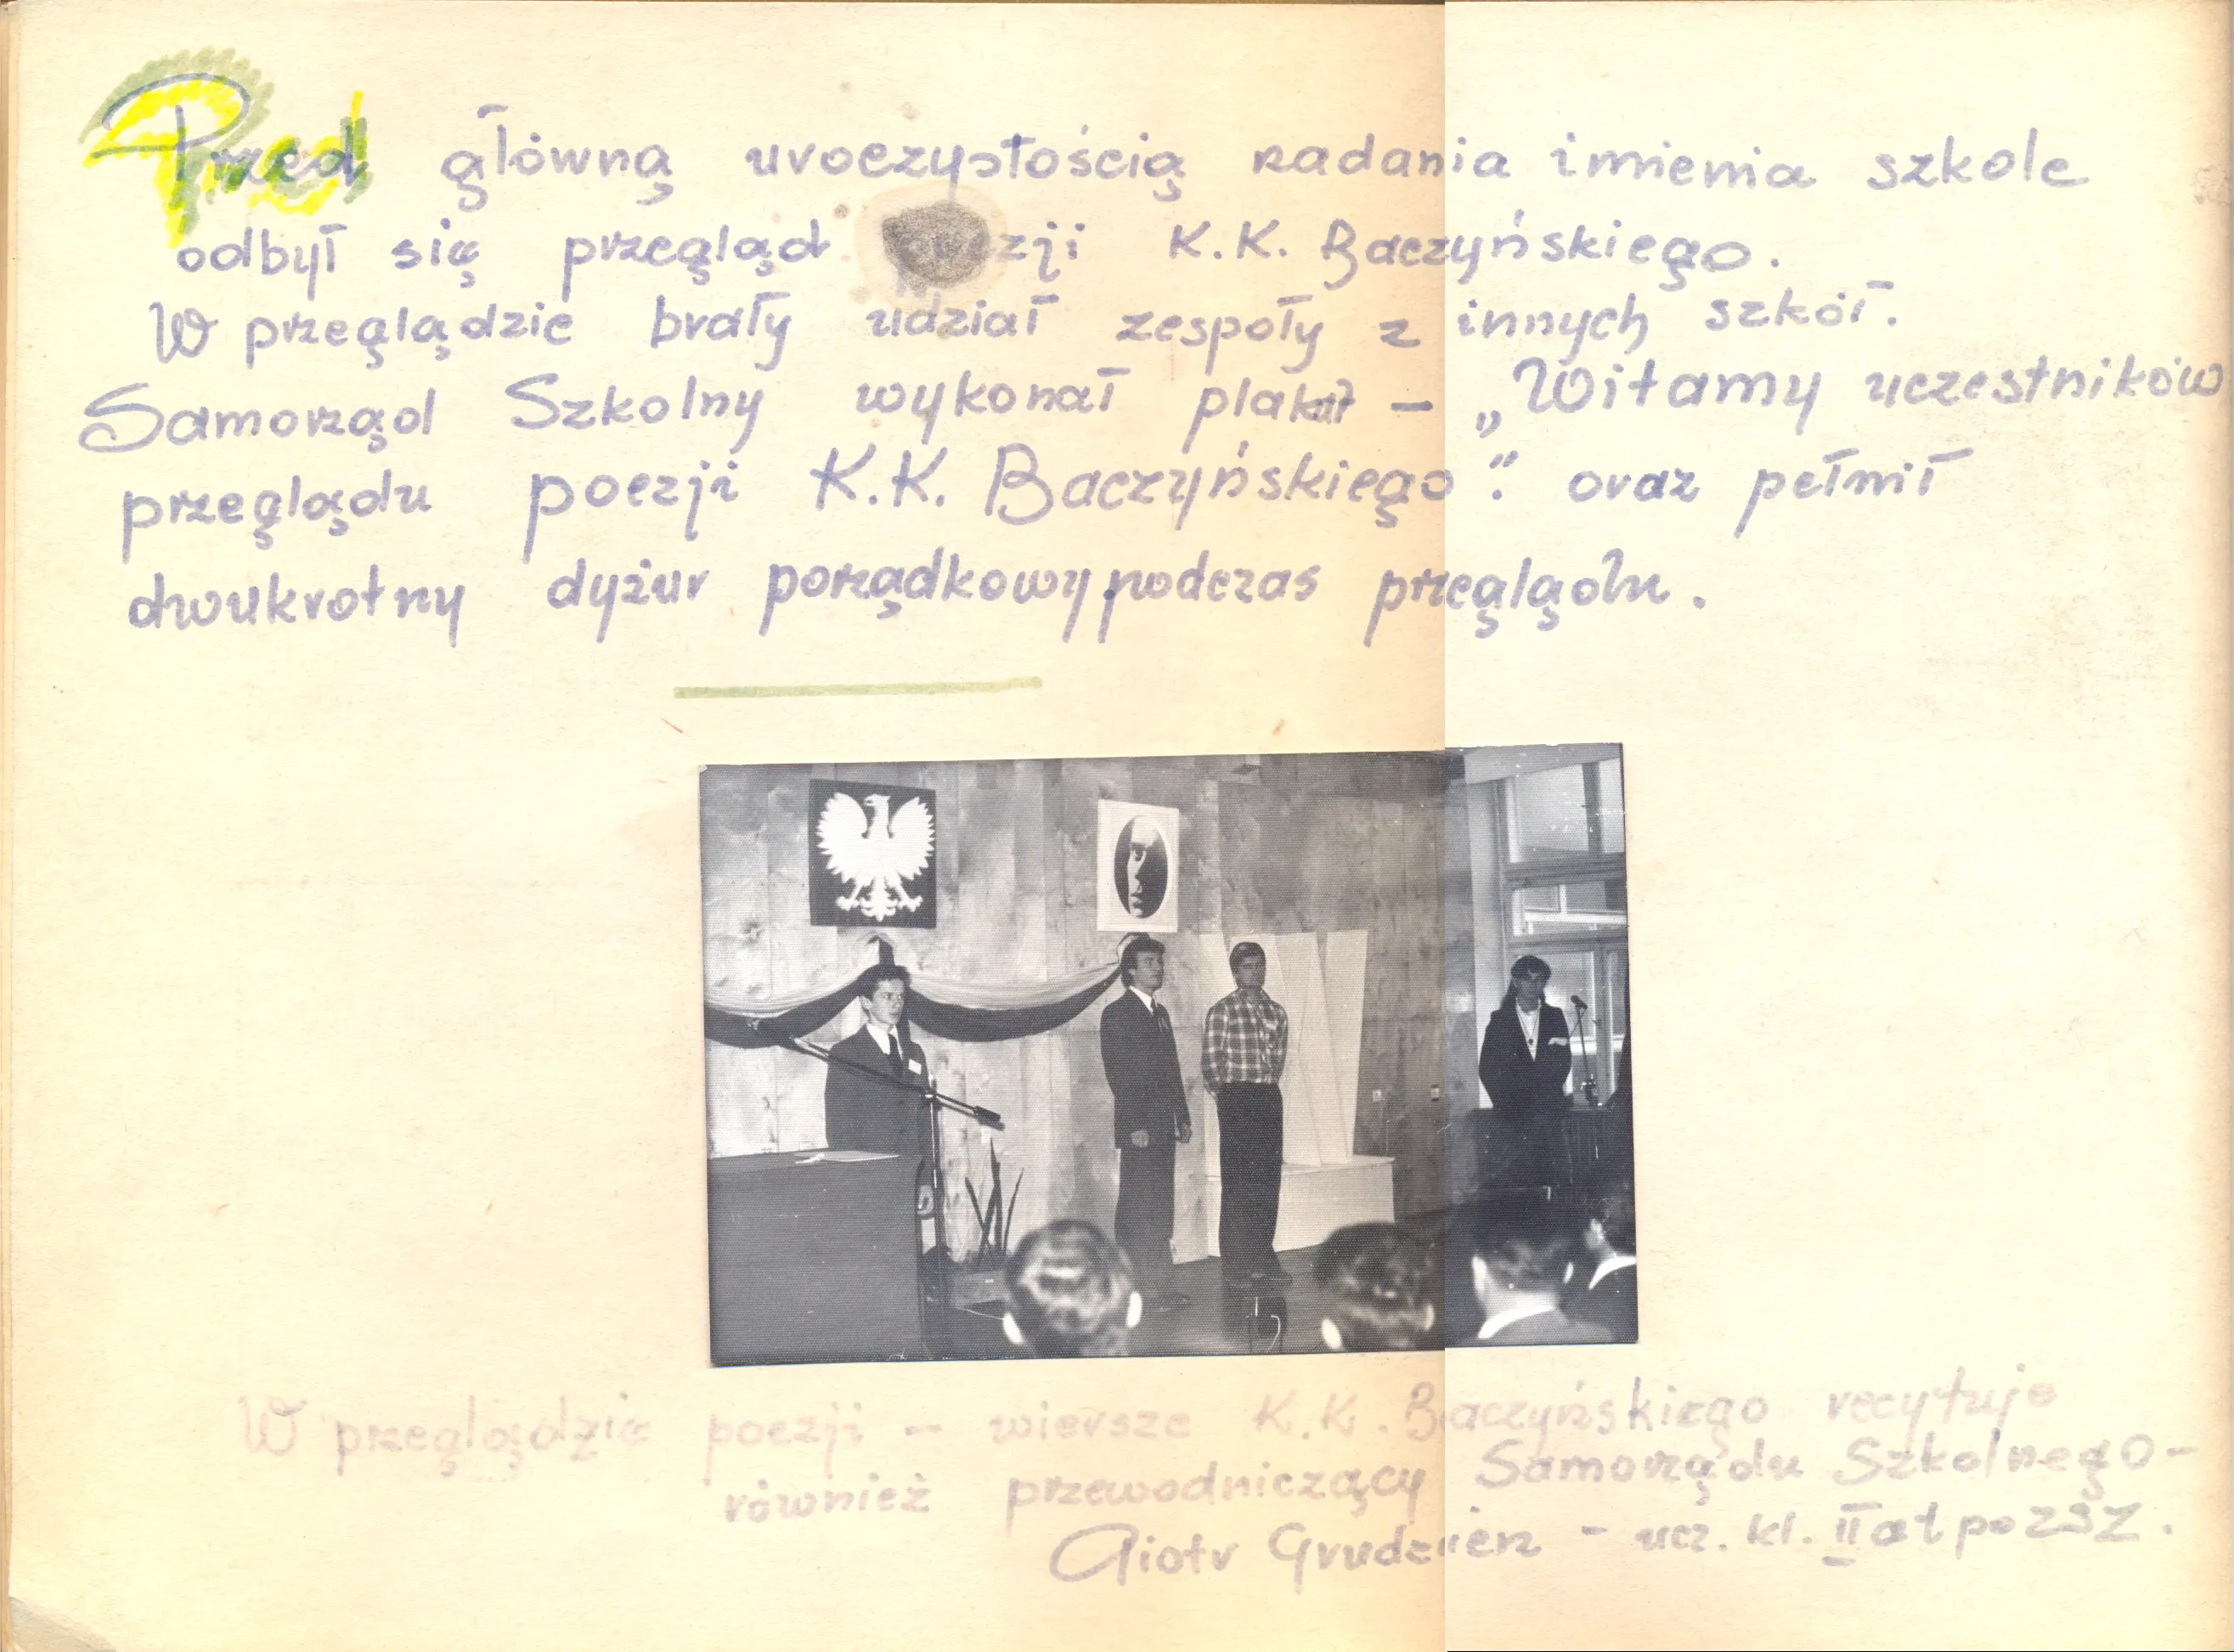 Przed główną uroczystością nadania imienia szkole
odbył się przegląd poezji K.K. Baczyńskiego.
W przeglądzie brały udział zespoły z innych szkół.
Samorząd Szkolny wykonał plakat – „Witamy uczestników
przeglądu poezji K.K. Baczyńskiego”. oraz pełnił
dwukrotny dyżur porządkowy podczas przeglądu.
W przeglądzie poezji – wiersze K.K. Baczyńskiego recytuje
również przewodniczący Samorządu Szkolnego –
Piotr Grudzień - ucz. kl. II at po ZSZ.